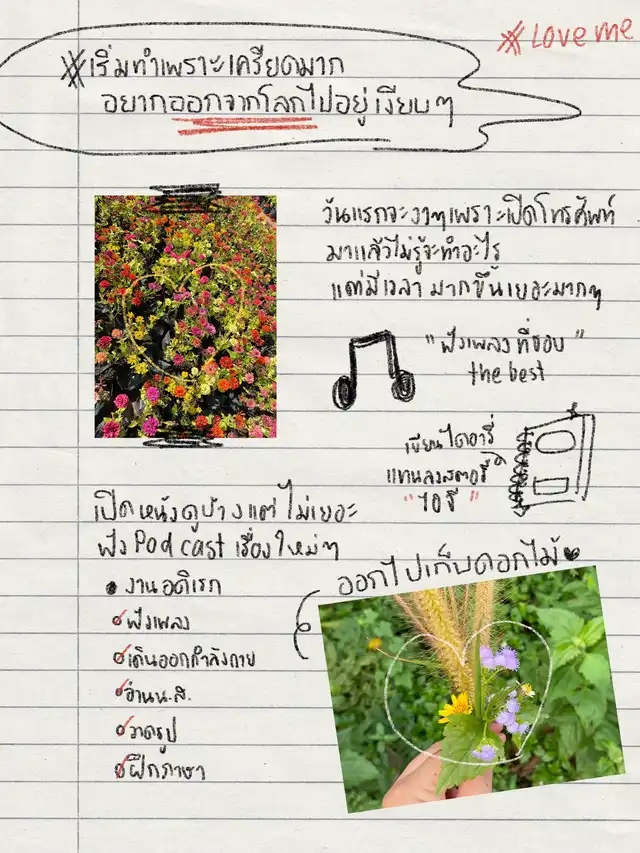 *Love me
*เริ่มทำเพราะเครียดมาก
อยากออกจากโลกไปอยู่เงียบๆ
วันแรกจะงงๆเพราะเปิดโทรศัพท์
มาแล้วไม่รู้จะทำอะไร
แต่มีเวลา มากขึ้นเยอะมากๆ
"ฟังเพลงที่ชอบ"
the best
เขียนไดอารี่
แทนลงสตอรี่
"ไอจี"
เปิดหนังดูบ้างแต่ไม่เยอะ
ฟัง Podcast เรื่องใหม่ๆ
ออกไปเก็บดอกไม้
• งานอดิเรก
ฟังเพลง
เดินออกกำลังกาย
อ่านน.ส.
วาดรูป
ฝึกภาษา